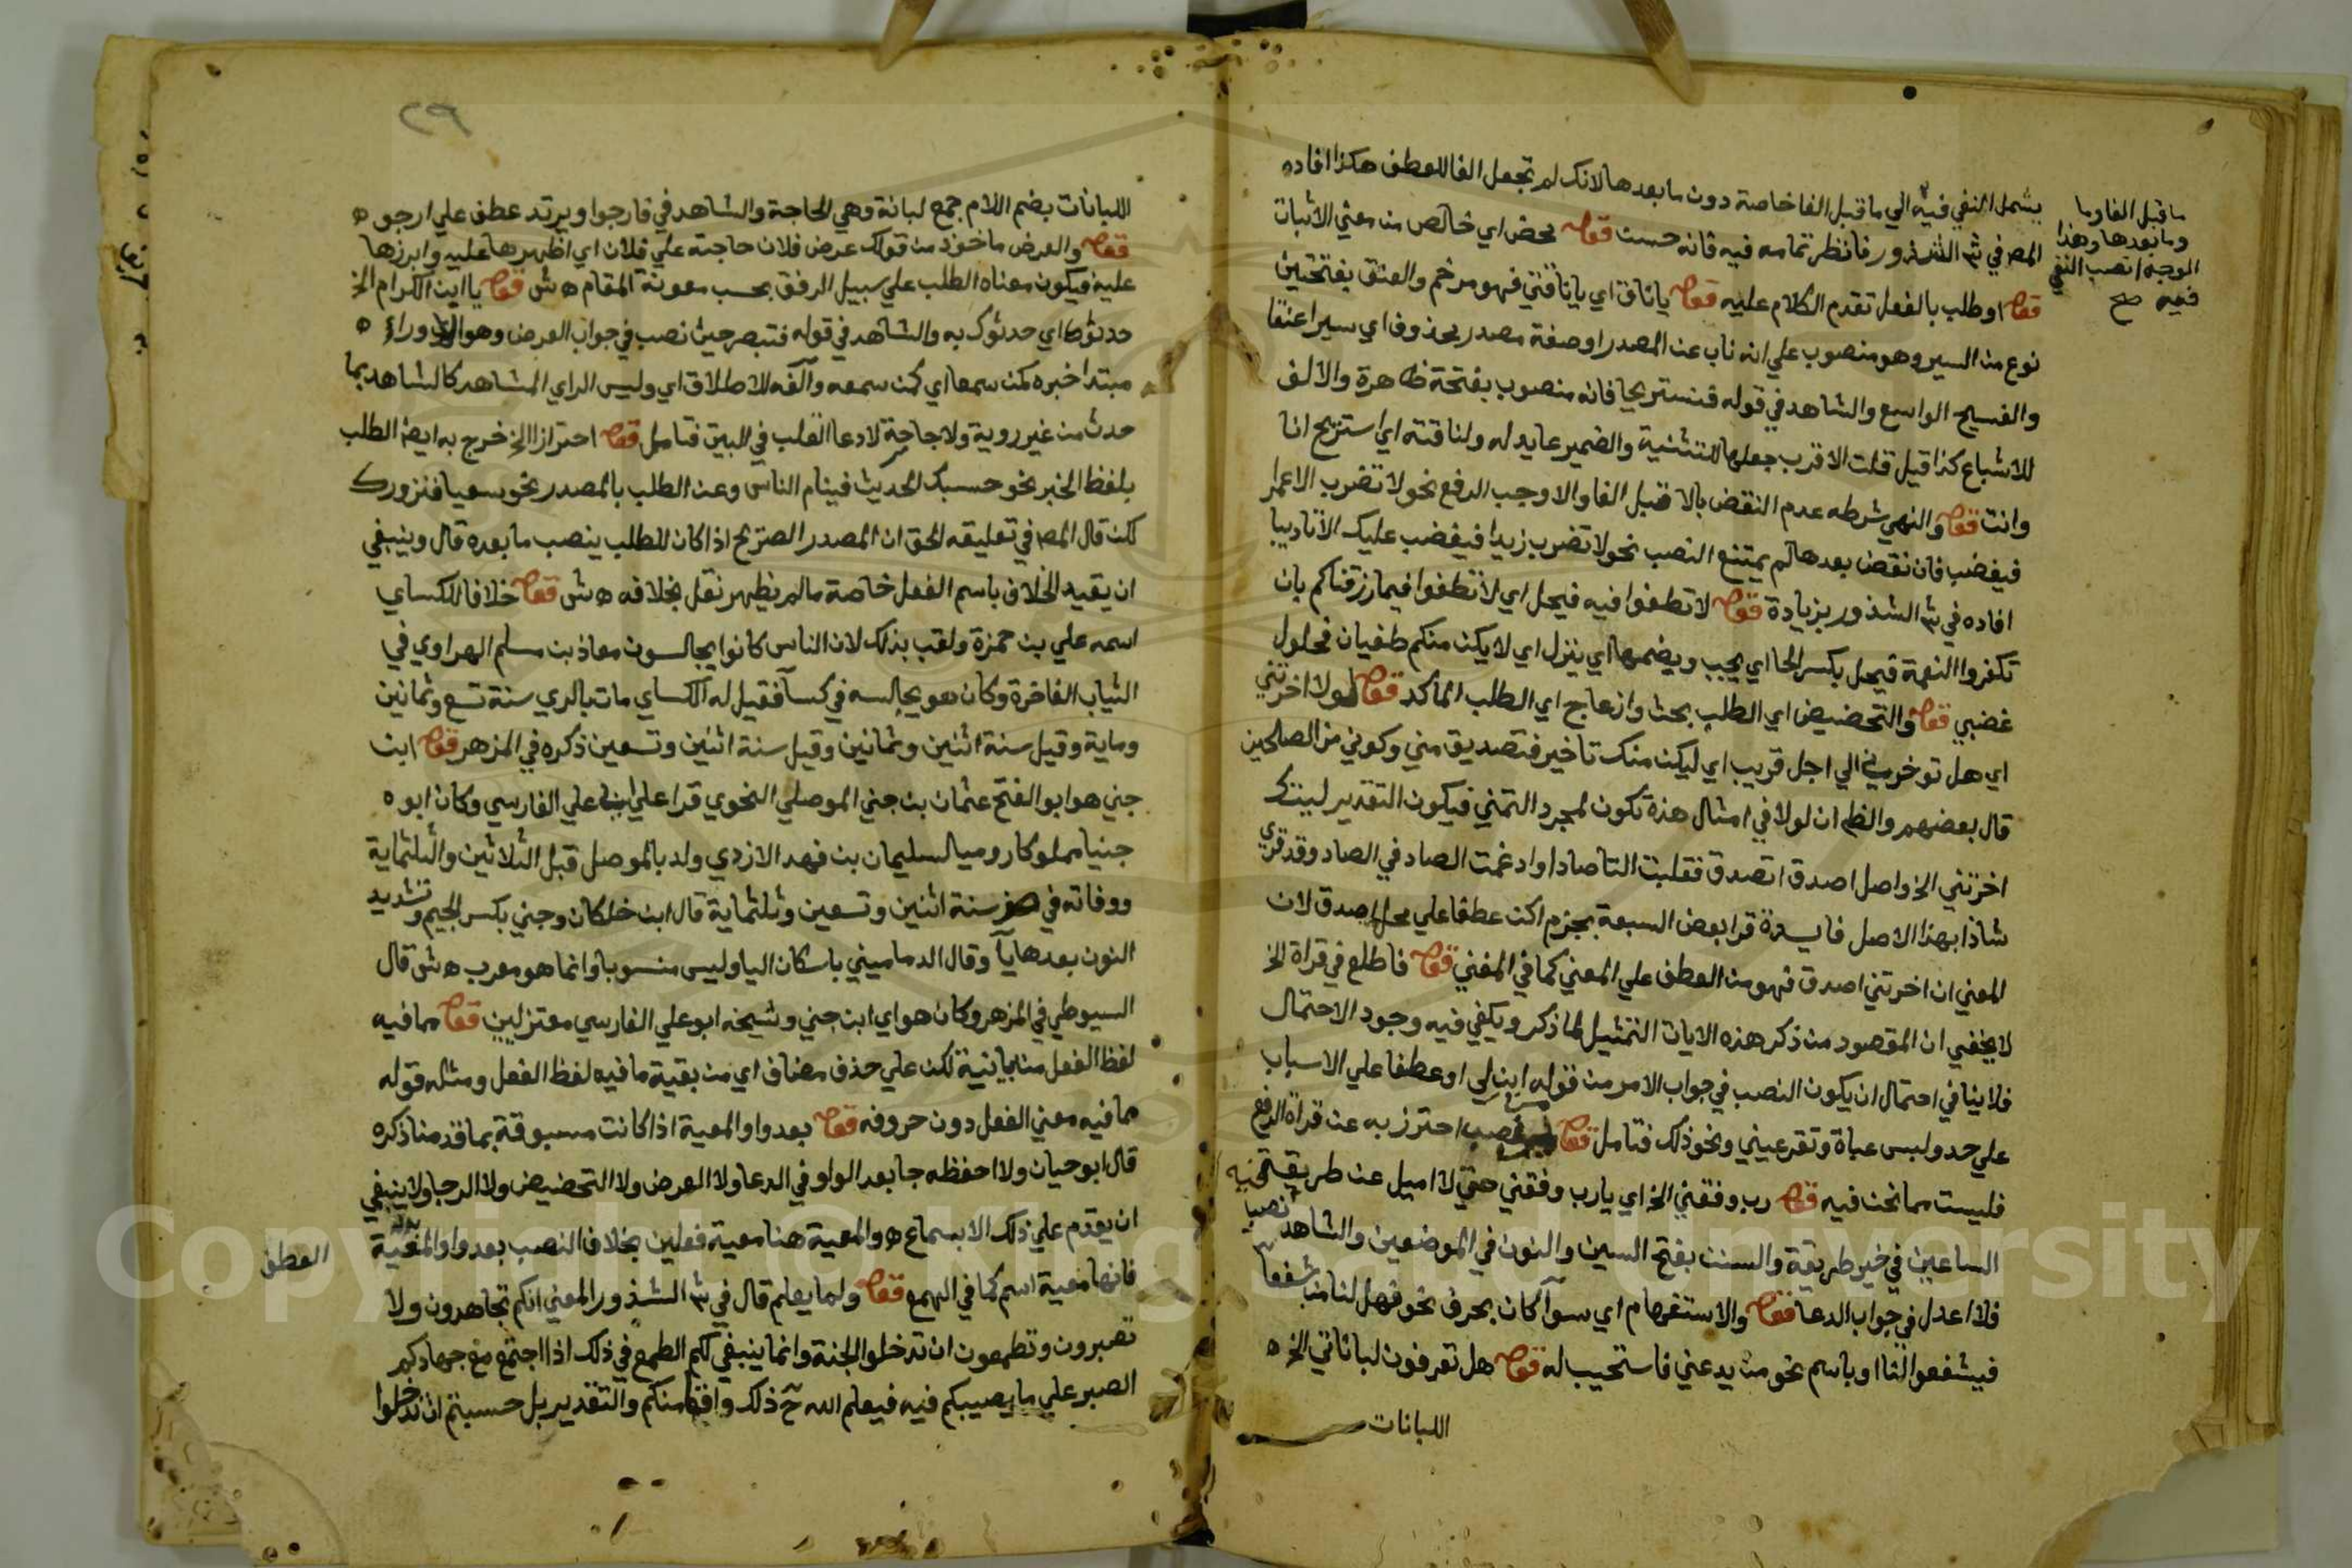 يشمل النفي فيه الي ما قبل الفا خاصة دون ما بعدها لانك لم تجعل الفا للعطف هكذا افاده
ما قبل الفا وما
وما بعدها وهذا
الوجه انصب النفي
فيه صح
المص في ش الشذور فانظر تمامه فيه فانه حسن قوله محض اي خالص من معني الاثبات
قوله او طلب بالفعل تقدم الكلام عليه قوله يا ناق اي يا ناقتي فهو مرخم والعنق بفتحتين
نوع من السير وهو منصوب علي انه ناب عن المصدر او صفة مصدر محذوف اي سيرا عنقا
والفسيح الواسع والشاهد في قوله فنستريحا فانه منصوب بفتحة ظاهرة والالف
للاشباع كذا قيل قلت الاقرب جعلها للتثنية والضمير عايد له ولناقته اي استريح انا
وانت قوله والنهي شرطه عدم النقض بالا قبل الفا والا وجب الرفع نحو لا تضرب الا عمرا
فيغضب فان نقض بعدها لم يمتنع النصب نحو لا تضرب زيدا فيغضب عليك الا تاديبا
افاده في ش الشذور بزيادة قوله لا تطغوا فيه فيحل اي لا تطغوا فيما رزقناكم بان
تكفروا النعمة فيحل بكسر الحا اي يجب وبضمها اي ينزل اي لا يكن منكم طغيان فحلول
غضبي قوله والتحضيض اي الطلب بحث وازعاج اي الطلب الماكد قوله لولا اخرتني
اي هل توخرني الي اجل قريب اي ليكن منك تاخير فتصديق مني وكوني من الصلحين
قال بعضهم والظ ان لولا في امثال هذه تكون لمجرد التمني فيكون التقدير ليتك
اخرتني الخ واصل اصدق اتصدق فقلبت التا صادا وادغمت الصاد في الصاد وقد قري
شاذا بهذا الاصل فايدة قرا بعض السبعة بجزم اكن عطفا علي محل اصدق لان
المعني ان اخرتني اصدق فهو من العطف علي المعني كما في المغني قوله فاطلع في قراة الخ
لا يخفي ان المقصود من ذكر هذه الايات التمثيل لما ذكر ويكفي فيه وجود الاحتمال
فلا ينافي احتمال ان يكون النصب في جواب الامر من قوله ابن لي او عطفا علي الاسباب
علي حد ولبس عباة وتقر عيني ونحو ذلك فتامل قوله احترز به عن قراة الرفع
فليست مما نحن فيه قوله رب وفقني الخ اي يا رب وفقني حتي لا اميل عن طريقة
الساعين في خير طريقة والسنن بفتح السين والنون في الموضعين والشاهد نصب
فلا اعدل في جواب الدعا قوله والاستفهام اي سوآ كان بحرف نحو فهل لنا من شفعا
فيشفعوا لنا او باسم نحو من يدعني فاستجيب له قوله هل تعرفون لباناتي الخ ه
اللبانات
٢٩
اللبانات بضم اللام جمع لبانة وهي الحاجة والشاهد في فارجوا ويرتد عطف علي ارجو ه
قوله والعرض ماخوذ من قولك عرض فلان حاجته علي فلان اي اظهرها عليه وابرزها
عليه فيكون معناه الطلب علي سبيل الرفق بحسب معونة المقام ه ش قوله يا ابن الكرام الخ
حدثوك اي حدثوك به والشاهد في قوله فتبصر حيث نصب في جواب العرض وهو الا وراء ه
مبتدا خبره كمن سمعا اي كمن سمعه وآلفه للاطلاق اي وليس الراي المشاهد كالشاهد بما
حدث من غير روية ولا حاجة لادعا القلب في البيت فتامل قوله احترازا الخ خرج به ايضا الطلب
بلفظ الخبر نحو حسبك الحديث فينام الناس وعن الطلب بالمصدر نحو سعيا فنزورك
لكن قال المص في تعليقه الحق ان المصدر الصريح اذا كان للطلب ينصب ما بعده قال وينبغي
ان يقيد الخلاف باسم الفعل خاصة ما لم يظهر نقل بخلافه ه ش قوله خلافا للكساي
اسمه علي بن حمزة ولقب بذلك لان الناس كانوا يجالسون معاذ بن مسلم الهراوي في
الثياب الفاخرة وكان هو يجالسه في كسآ فقيل له الكساي مات بالري سنة تسع وثمانين
وماية وقيل سنة اثنين وثمانين وقيل سنة اثنين وتسعين ذكره في المزهر قوله ابن
جني هو ابو الفتح عثمان بن جني الموصلي النحوي قرا علي ابي علي الفارسي وكان ابوه
جنيا مملوكا روميا لسليمان بن فهد الازدي ولد بالموصل قبل الثلاثين والثلثماية
ووفاته في صفر سنة اثنين وتسعين وثلثماية قال ابن خلكان وجني بكسر الجيم وتشديد
النون بعدها يآ وقال الدماميني باسكان اليا وليس منسوبا وانما هو معرب ه ش قال
السيوطي في المزهر وكان هو اي ابن جني وشيخه ابو علي الفارسي معتزليين قوله مما فيه
لفظ الفعل من بيانية لكن علي حذف مضاف اي من بقية ما فيه لفظ الفعل ومثله قوله
مما فيه معني الفعل دون حروفه قوله بعد واو المعية اذا كانت مسبوقة بما قدمنا ذكره
قال ابو حيان ولا احفظه جا بعد الواو في الدعا ولا العرض ولا التحضيض ولا الرجا ولا ينبغي
ان يقدم علي ذلك الا بسماع ه والمعية هنا معية فعلين بخلاف النصب بعد واو المعية
فانها معية اسم كما في الهمع قوله ولما يعلم قال في ش الشذور المعني انكم تجاهدون ولا
تصبرون وتطمعون ان تدخلوا الجنة وانما ينبغي لكم الطمع في ذلك اذا اجتمع مع جهادكم
الصبر علي ما يصيبكم فيه فيعلم الله ح ذلك واقعا منكم والتقدير بل حسبتم ان تدخلوا
العطف
Copyright © King Saud University